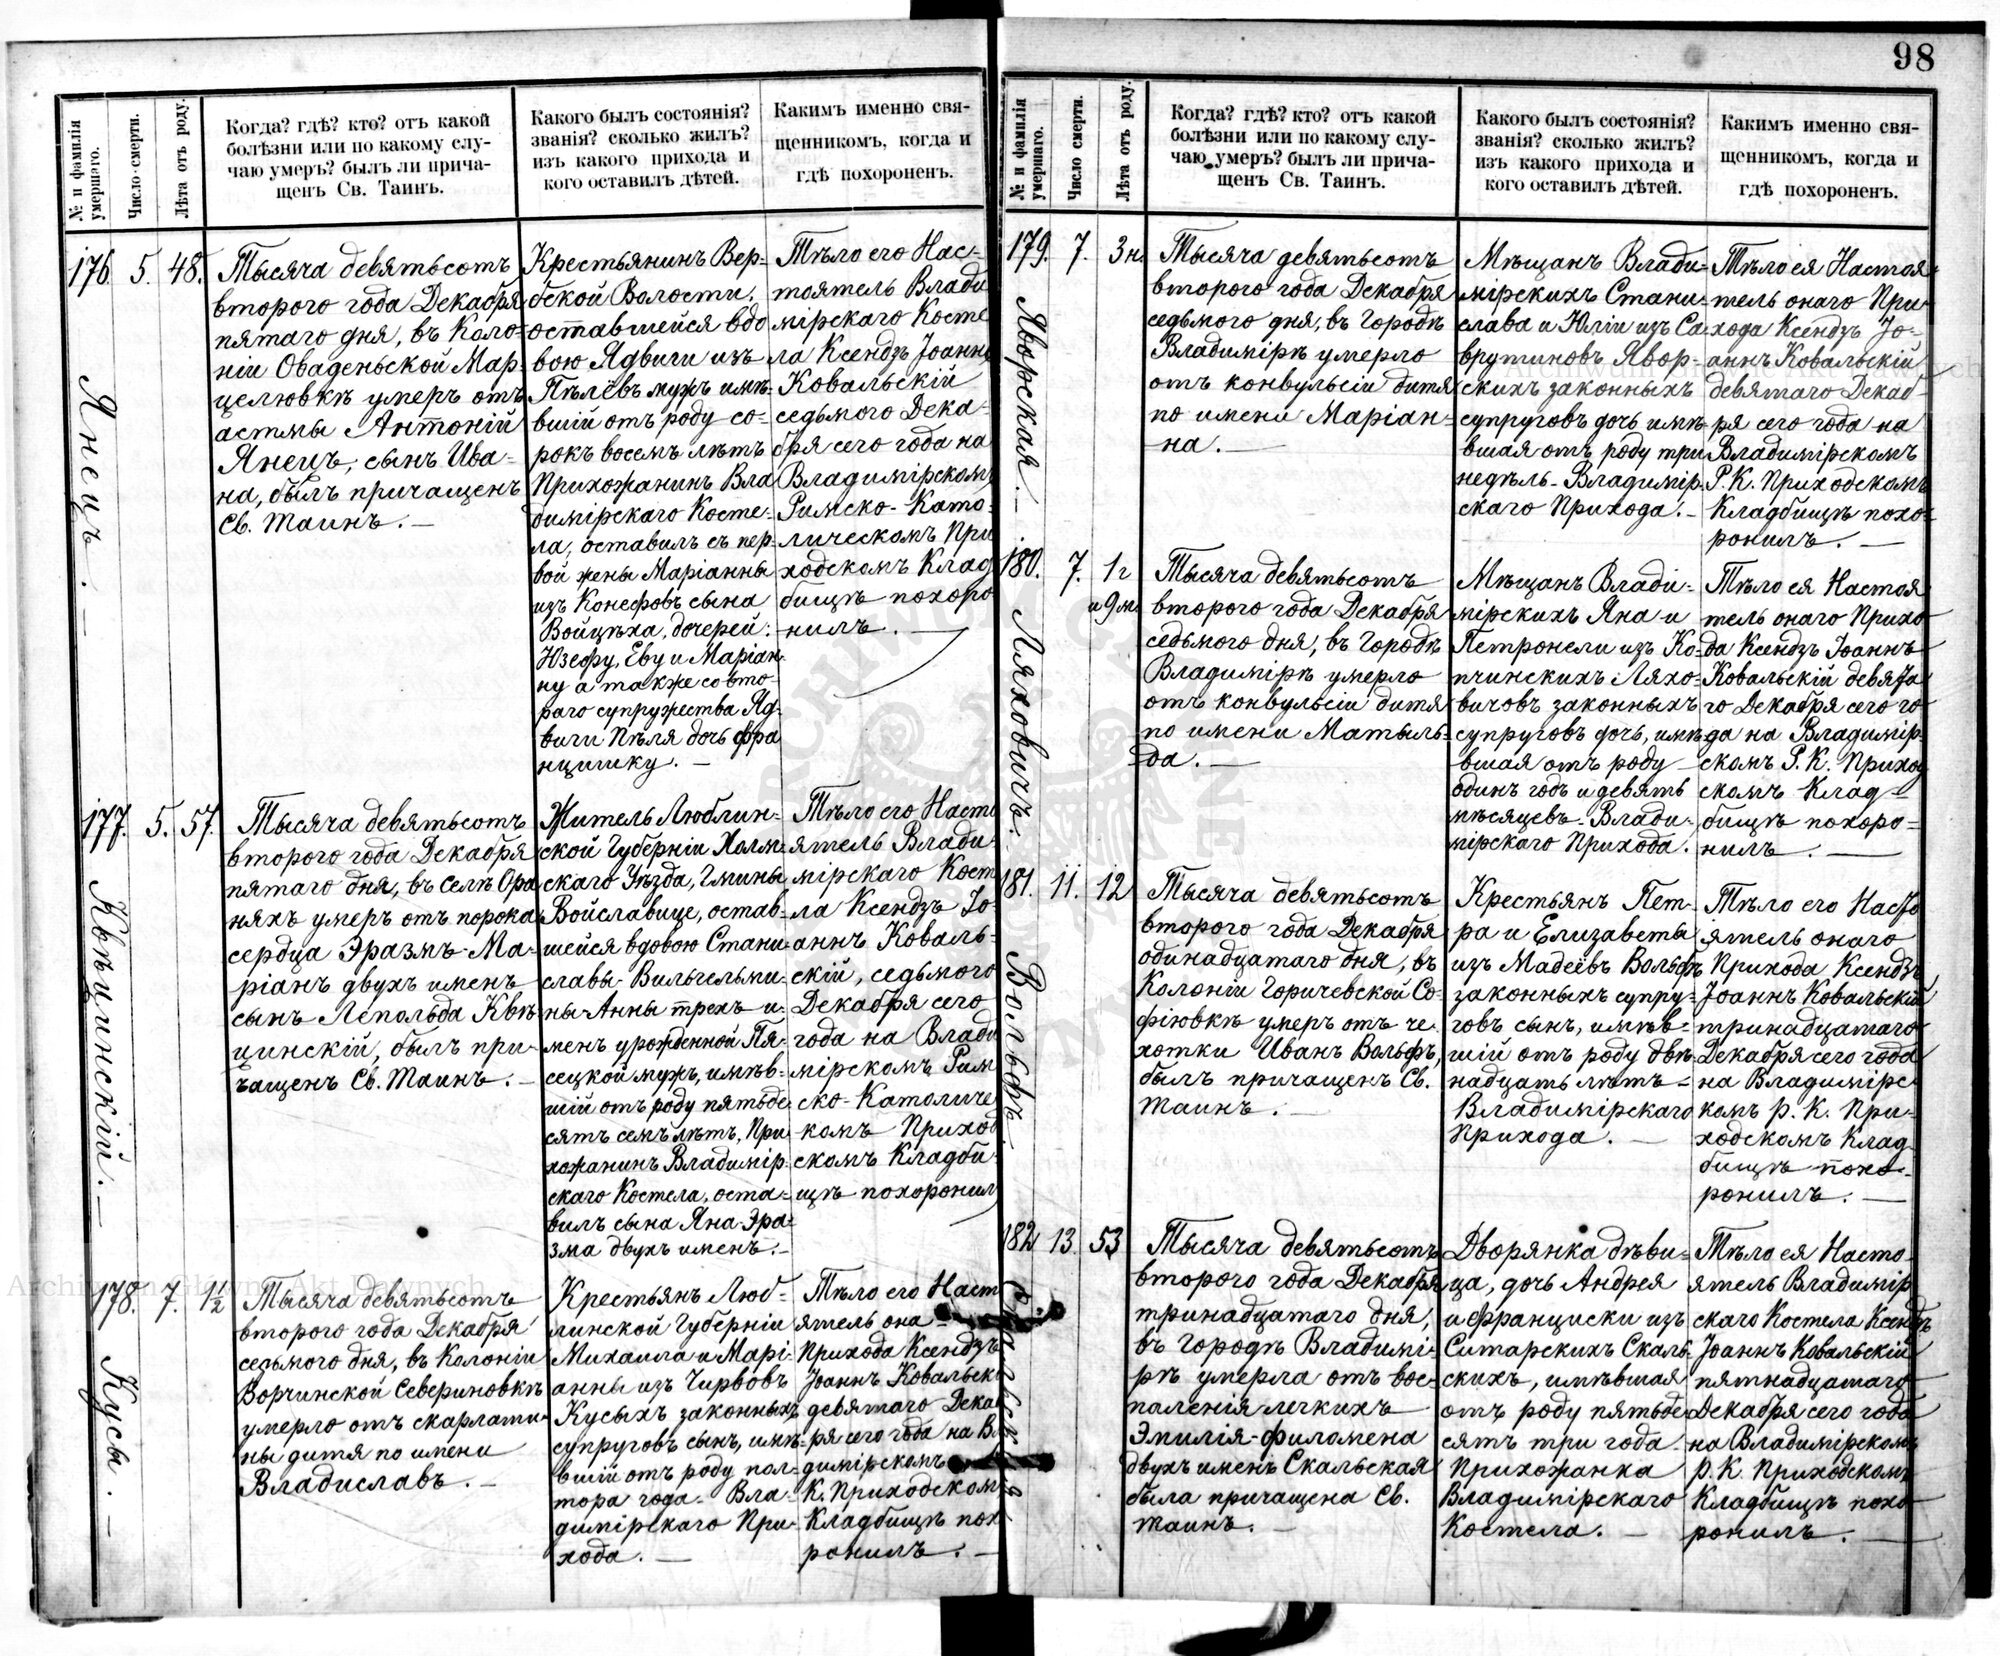 98
№ и фамилія умершаго.
Число смерти.
Лѣта отъ роду.
Когда? гдѣ? кто? отъ какой
болѣзни или по какому слу-
чаю умеръ? былъ ли прича-
щенъ Св. Таинъ.
Какого былъ состоянія?
званія? сколько жилъ?
изъ какого прихода и
кого оставилъ дѣтей.
Какимъ именно свя-
щенникомъ, когда и
гдѣ похороненъ.
176. 5. 48.
Янецъ. —
Тысяча девятьсотъ
второго года Декабря
пятаго дня, въ Коло-
ніи Оваденьской Мар-
целювкѣ умеръ отъ
астмы Антоній
Янецъ, сынъ Ива-
на, былъ причащенъ
Св. Таинъ. —
Крестьянинъ Вер-
бской Волости,
оставшейся вдо
вою Ядвиги изъ
Пѣлёвъ мужъ имѣ-
вшій отъ роду со-
рокъ восемъ лѣтъ
Прихожанинъ Вла
димірскаго Косте-
ла, оставилъ съ пер-
вой жены Маріанны
изъ Конефовъ сына
Войцѣха, дочерей:
Юзефу, Еву и Маріан-
ну а также со вто-
раго супружества Яд-
виги Пѣля дочь Фра
нцишку. —
Тѣло его Нас-
тоятель Влади
мірскаго Косте
ла Ксендзъ Іоаннъ
Ковальскій
седьмого Дека-
бря сего года на
Владимірскомъ
Римско-Като-
лическомъ При
ходскомъ Клад
бищѣ похоро
нилъ. —
177. 5. 57.
Квѣцинскій. —
Тысяча девятьсотъ
второго года Декабря
пятаго дня, въ селѣ Ора
няхъ умеръ отъ порока
сердца Эразмъ-Ма-
ріанъ двухъ именъ
сынъ Леполъда Квѣ-
цинскій, былъ при-
чащенъ Св. Таинъ. —
Житель Люблин-
ской Губерніи Холм-
скаго Уѣзда, Гмины
Войславице, остав-
шейся вдовою Стани-
славы-Вильгельми-
ны-Анны трехъ и-
менъ урожденной Пя-
сецкой мужъ, имѣв-
шій отъ роду пятьде
сятъ семъ лѣтъ, При
хожанинъ Владимір-
скаго Костела, оста-
вилъ сына Яна-Эра-
зма двухъ именъ. —
Тѣло его Насто
ятель Влади-
мірскаго Косте
ла Ксендзъ Іо-
аннъ Коваль-
скій, седьмого
Декабря сего
года на Влади
мірскомъ Рим
ско-Католичес
комъ Приход
скомъ Кладби-
щѣ похоронил
178. 7. 1½
Кусы. —
Тысяча девятьсотъ
второго года Декабря
седьмого дня, въ Колоніи
Ворчинской Севериновкѣ
умерло отъ скарлати-
ны дитя по имени
Владиславъ. —
Крестьянъ Люб-
линской Губерніи
Михаила и Марі-
анны изъ Чирвовъ
Кусыхъ законныхъ
супруговъ сынъ, имѣ-
вшій отъ роду пол-
тора года. Вла-
димірскаго При-
хода. —
Тѣло его Наст
ятель она
Прихода Ксендзъ
Іоаннъ Ковальскі
девятаго Дека
ря сего года на Вл
димірскомъ
К. Приходском
Кладбищѣ пох
ронилъ. —
№ и фамилія умершаго.
Число смерти.
Лѣта отъ роду.
Когда? гдѣ? кто? отъ какой
болѣзни или по какому слу-
чаю умеръ? былъ ли прича-
щенъ Св. Таинъ.
Какого былъ состоянія?
званія? сколько жилъ?
изъ какого прихода и
кого оставилъ дѣтей.
Какимъ именно свя-
щенникомъ, когда и
гдѣ похороненъ.
179. 7. 3 н.
Яворская. —
Тысяча девятьсотъ
второго года Декабря
седьмого дня, въ Городѣ
Владимірѣ умерло
отъ конвульсіи дитя
по имени Маріан-
на. —
Мѣщанъ Влади-
мірскихъ Стани-
слава и Юліи изъ Са
врутиновъ Явор-
скихъ законныхъ
супруговъ дочь имѣ-
вшая отъ роду три
недѣль. Владимір-
скаго Прихода. —
Тѣло ея Настоя-
тель онаго При-
хода Ксендзъ Іо-
аннъ Ковальскій,
девятаго Декаб-
ря сего года на
Владимірскомъ
Р. К. Приходскомъ
Кладбищѣ похо-
ронилъ. —
180. 7. 1 г
и 9 м.
Ляховичъ. —
Тысяча девятьсотъ
второго года Декабря
седьмого дня, въ Городѣ
Владимірѣ умерло
отъ конвульсіи дитя
по имени Матыль-
да. —
Мѣщанъ Владі-
мірскихъ Яна и
Петронели изъ Ко-
пчинскихъ Ляхо-
вичовъ законныхъ
супруговъ дочь, имѣ-
вшая отъ роду
одинъ годъ и девять
мѣсяцевъ. Влади-
мірскаго Прихода.
Тѣло ея Настоя
тель онаго Прихо
да Ксендзъ Іоаннъ
Ковальскій девята
го Декабря сего го
да на Владимір-
скомъ Р. К. Приход
скомъ Клад-
бищѣ похоро-
нилъ. —
181. 11. 12
Вольфъ. —
Тысяча девятьсотъ
второго года Декабря
одинадцатаго дня, въ
Колоніи Горичевской Со-
фіювкѣ умеръ отъ че-
хотки Иванъ Вольфъ,
былъ причащенъ Св.
Таинъ. —
Крестьянъ Пет-
ра и Елизаветы
изъ Мадеёвъ Вольфъ
законныхъ супру-
говъ сынъ, имѣв-
шій отъ роду двѣ-
надцать лѣтъ —
Владимірскаго
Прихода. —
Тѣло его Насто
ятель онаго
Прихода Ксендзъ
Іоаннъ Ковальскій
тринадцатаго
Декабря сего года
на Владимірс-
комъ Р. К. При-
ходскомъ Клад-
бищѣ похо-
ронилъ. —
182 13. 53
Скальская
Тысяча девятьсотъ
второго года Декабря
тринадцатаго дня,
въ Городѣ Владимі-
рѣ умерла отъ вос-
паленія легкихъ
Эмилія-Филомена
двухъ именъ Скальская
была причащена Св.
Таинъ. —
Дворянка дѣви-
ца, дочь Андрея
и Франциски изъ
Ситарскихъ Скаль-
скихъ, имѣвшая
отъ роду пятьде
сятъ три года.
Прихожанка
Владимірскаго
Костела. —
Тѣло ея Насто-
ятель Владимір
скаго Костела Ксендзъ
Іоаннъ Ковальскій
пятнадцатаго
Декабря сего года
на Владимірскомъ
Р. К. Приходскомъ
Кладбищѣ похо-
ронилъ. —
Archiwum Główne Akt Dawnych